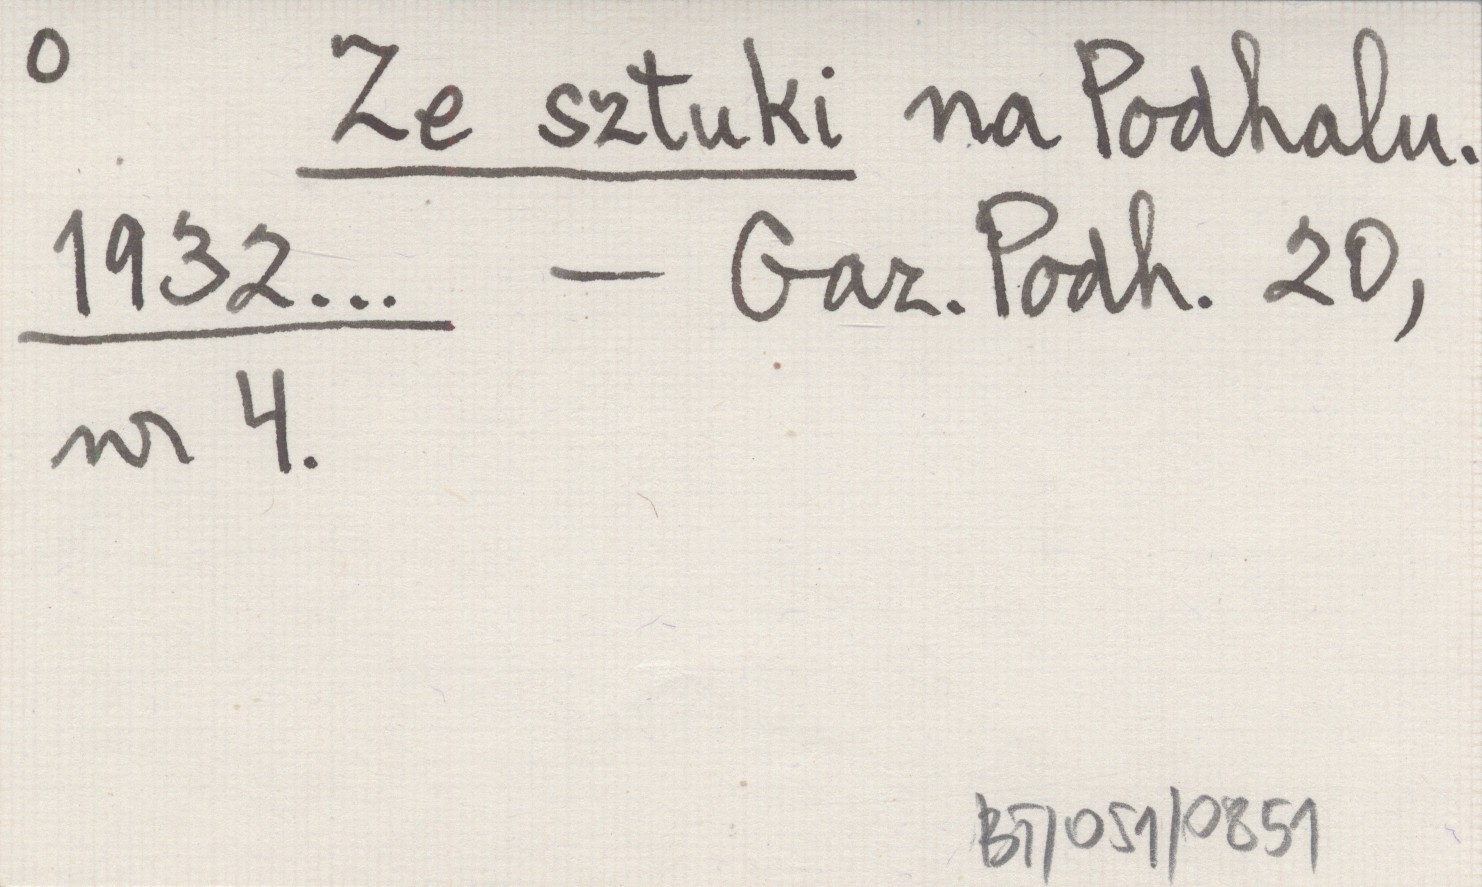 0 Ze sztuki na Podhalu.
1932... — Gaz. Podh. 20,
nr 4.
BT/051/0851